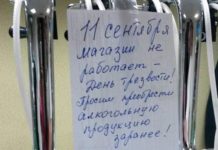 11 сентября
магазин не
работает -
День трезвости!
Просим приобрести
алкогольную
продукцию
заранее!